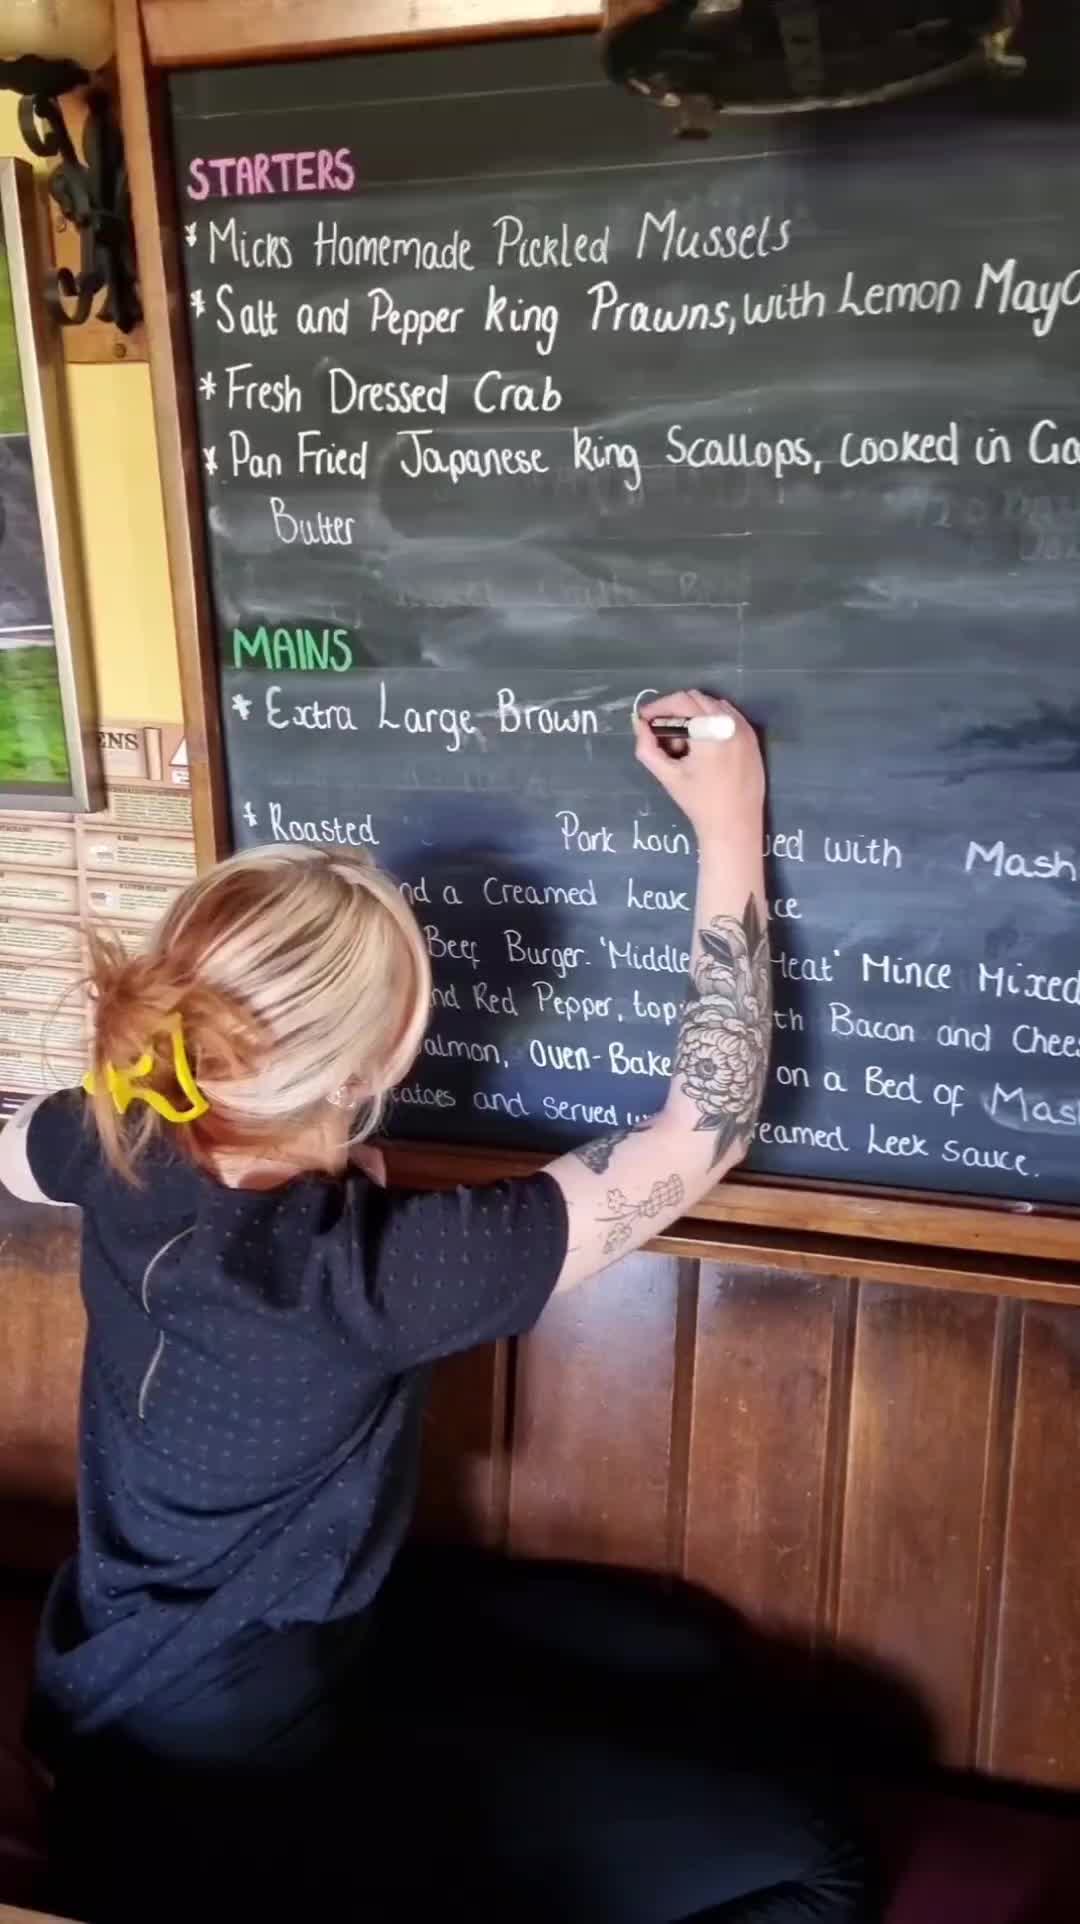 STARTERS
* Micks Homemade Pickled Mussels
* Salt and Pepper king Prawns, with Lemon Mayo
* Fresh Dressed Crab
* Pan Fried Japanese king Scallops, cooked in Ga
Butter
MAINS
* Extra Large Brown C
* Roasted Pork Loin, ed with Mash
nd a Creamed Leak ce
Beef Burger. 'Middle Meat' Mince Mixed
nd Red Pepper, top th Bacon and Chees
almon, Oven-Bake on a Bed of Mas
tatoes and served reamed Leek Sauce.
ENS